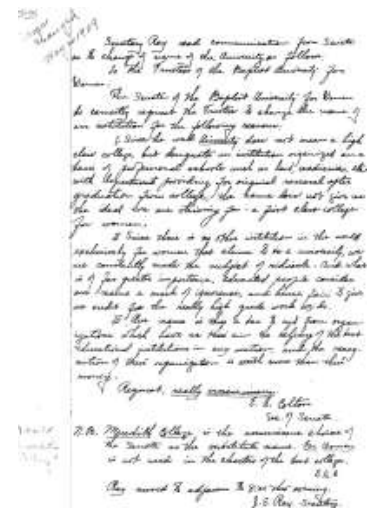 name
change
May 1909
Secretary Ray read communication from Senate
as to change of name of the University as follows
To the Trustees of the Baptist University for
Women.
The Senate of the Baptist University for Women
do earnestly request the Trustees to change the name of
our institution for the following reasons.
1 Since the word University does not mean a high
class college, but designates an institution organized on a
basis of professional schools such as law, medicine, etc
with departments providing for original research after
graduation from college, the name does not give us
the ideal we are striving for - a first class college
for women.
2 Since there is no other institution in the world
exclusively for women that claims to be a university, we
are constantly made the subject of ridicule. And what
is of far greater importance, educated people consider
our name a mark of ignorance, and hence fail to give
us credit for the really high grade work we do.
3 Our name is
which have as their aim the helping of the best
educational institutions in any section and the
of their organization is worth more than their
money.
Request,
E. E. Colton
Sec. of Senate
N. B. Meredith College is the unanimous choice of
the Senate as the substitute name. For Women
is not used in the charters of the best colleges.
Ray moved to adjourn to
J. E. Ray. Secretary